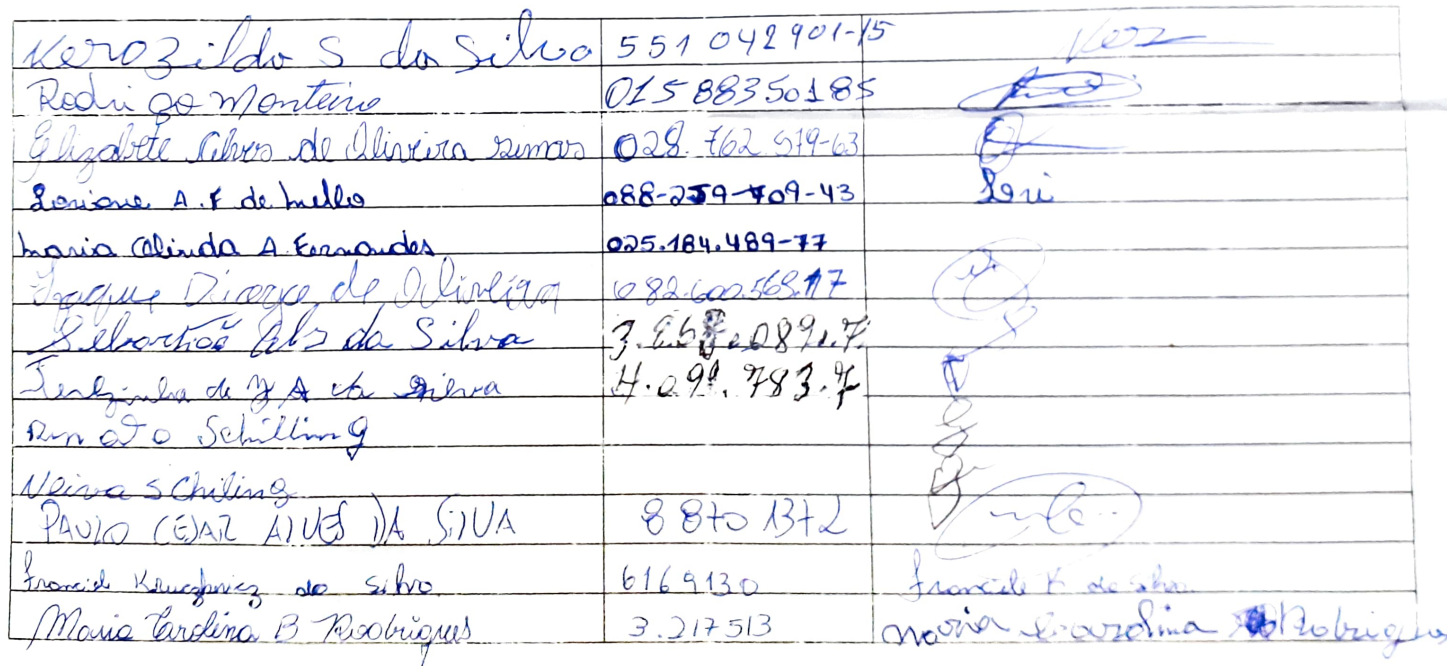 Kerozildo S da Silva 551 042 901-15 Koz
Rodrigo Monteiro 015 883 501 85
Elizabete Alves de Oliveira Simas 028.762 579-63
Loriane A. F de Mello 088-259-709-43 Lori
Maria Olinda A. Fernandes 025.184.489-77
de Oliveira 082.600.569.17
Sebastião Als da Silva
Terezinha de J A da Silva
Renato Schilling
Neiva Schiling
PAULO CESAR ALVES DA SILVA 8 870 1372
da Silva 6169130
Maria Carolina B Rodrigues 3.217513 Maria Carolina Rodrigues